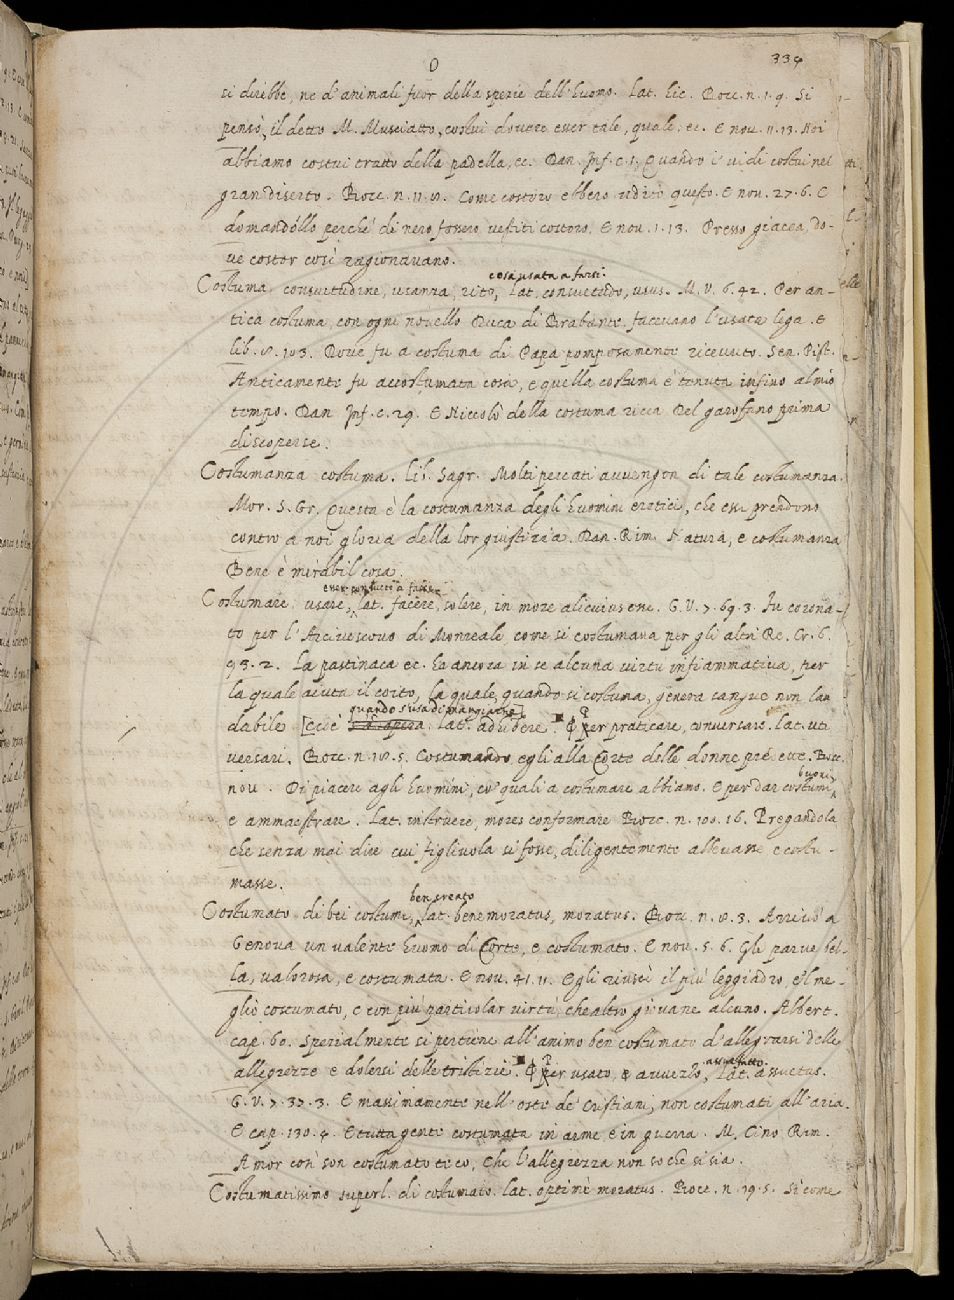 O 339
si direbbe, ne d'animali fuor della spezie dell'huomo. Lat. hic. Bocc. n. 1. 9. Si
pensò, il detto M. Musciatto, costui dovere esser tale, quale. ec. E nou. 11. 13. Noi
abbiamo costui tratto della padella, ec. Dan. Inf. c. 1. Quando i' vidi costui nel
gran diserto. Bocc. n. 11. 8. Come costoro ebbero udito questo. E nou. 27. 6. E
domandollo perchè di nero fossero vestiti costoro. E nou. 1. 13. Presso giacea, do-
ve costor così ragionavano.
cosa usata a farsi.
Costuma. consuetudine, usanza, rito, Lat. consuetudo, usus. M. V. 6. 42. Per an-
tica costuma, con ogni novello Duca di Brabante facevano l'usata lega. E
lib. 8. 103. Dove fu a costuma di Papa pomposamente ricevuto. Sen. Pist.
Anticamente fu accostumata cosa, e quella costuma è tenuta infino al mio
tempo. Dan Inf. c. 29. E Niccolò della costuma ricca Del garofano prima
discoperse.
Costumanza. costuma. Lib. Sagr. Molti peccati avvengon di tale costumanza.
Mor. S. Gr. Questa è la costumanza degli huomini eretici, che essi prendono
contro a noi gloria della lor giustizia. Dan. Rim. Natura, e costumanza
Bene è mirabil cosa.
Costumare. usare, Lat. facere, solere, in more alicuius esse. G. V. 7. 69. 3. Fu corona-
to per l'Arcivescovo di Monreale, come si costumava per gli altri Re. Cr. 6.
93. 2. La pastinaca ec. ha ancora in se alcuna virtù infiammativa, per
la quale aiuta il coito, la quale, quando si costuma, genera sangue non lau
quando s'usa di mangiarne]
dabile [cioè s'adopera. Lat. adhibere. per praticare, conversare. Lat. uti
versari. Bocc. n. 18. 5. Costumando egli alla Corte delle donne predette. Bocc.
buoni
nou. Di piacere agli huomini, co' quali a costumare abbiamo. E per dar costumi,
e ammaestrare. Lat. instruere, mores conformare Bocc. n. 100. 16. Pregandola
che senza mai dire cui figliuola si fosse, diligentemente allevasse e costu-
masse.
ben creato
Costumato. di bei costumi, Lat. bene moratus, moratus. Bocc. n. 8. 3. Arrivò a
Genova un valente huomo di Corte, e costumato. E nou. 5. 6. Gli parve bel-
la, valorosa, e costumata. E nou. 41. 11. Egli riuscì il più leggiadro, e'l me-
glio costumato, e con più particolar virtù, che altro giovane alcuno. Albert.
cap. 60. Spezialmente si pertiene all'animo ben costumato d'allegrarsi delle
assuefatto.
allegrezze e dolersi delle tristizie. per usato, e avvezzo, Lat. assuetus.
G. V. 7. 37. 3. E massimamente nell'oste de' Cristiani, non costumati all'aria.
E cap. 130. 4. E tutta gente costumata in arme, e in guerra. M. Cino Rim.
Amor così son costumato teco, Che l'allegrezza non so che si sia.
Costumatissimo superl. di costumato. Lat. optimè moratus. Bocc. n. 19. 5. Si come